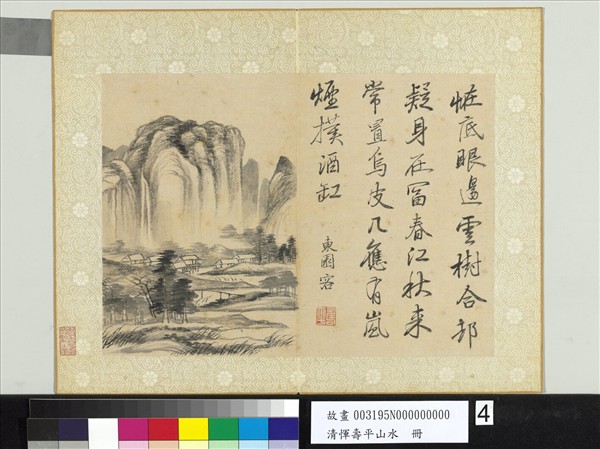 恠底眼邊雲樹合却
疑身在富春江秋来
常置烏皮几應有嵐
煙撲酒缸
東園客
故畫 003195N000000000
清惲壽平山水 冊
4